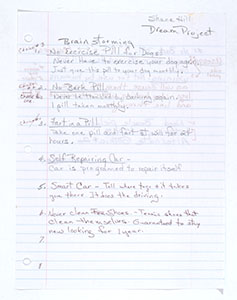 Shana Hill
Dream Project
Brain Storming
No Exercise Pill for Dogs!
Never Have to exercise your dog again
Just give the pill to your dog monthly.
2. No Bark Pill
Never be troubled by barking again.
1 pill taken monthly.
3. Fart in a Pill
Take one pill and fart at will for
hours.
4. Self Repairing Car -
Car is programed to repair itself
5. Smart Car - Tell where to go & it takes
you there. It does the driving.
6. Never Clean Shoes - Tennis shoes that
Clean themselves. Guaranteed to stay
new looking for 1 year.
7.